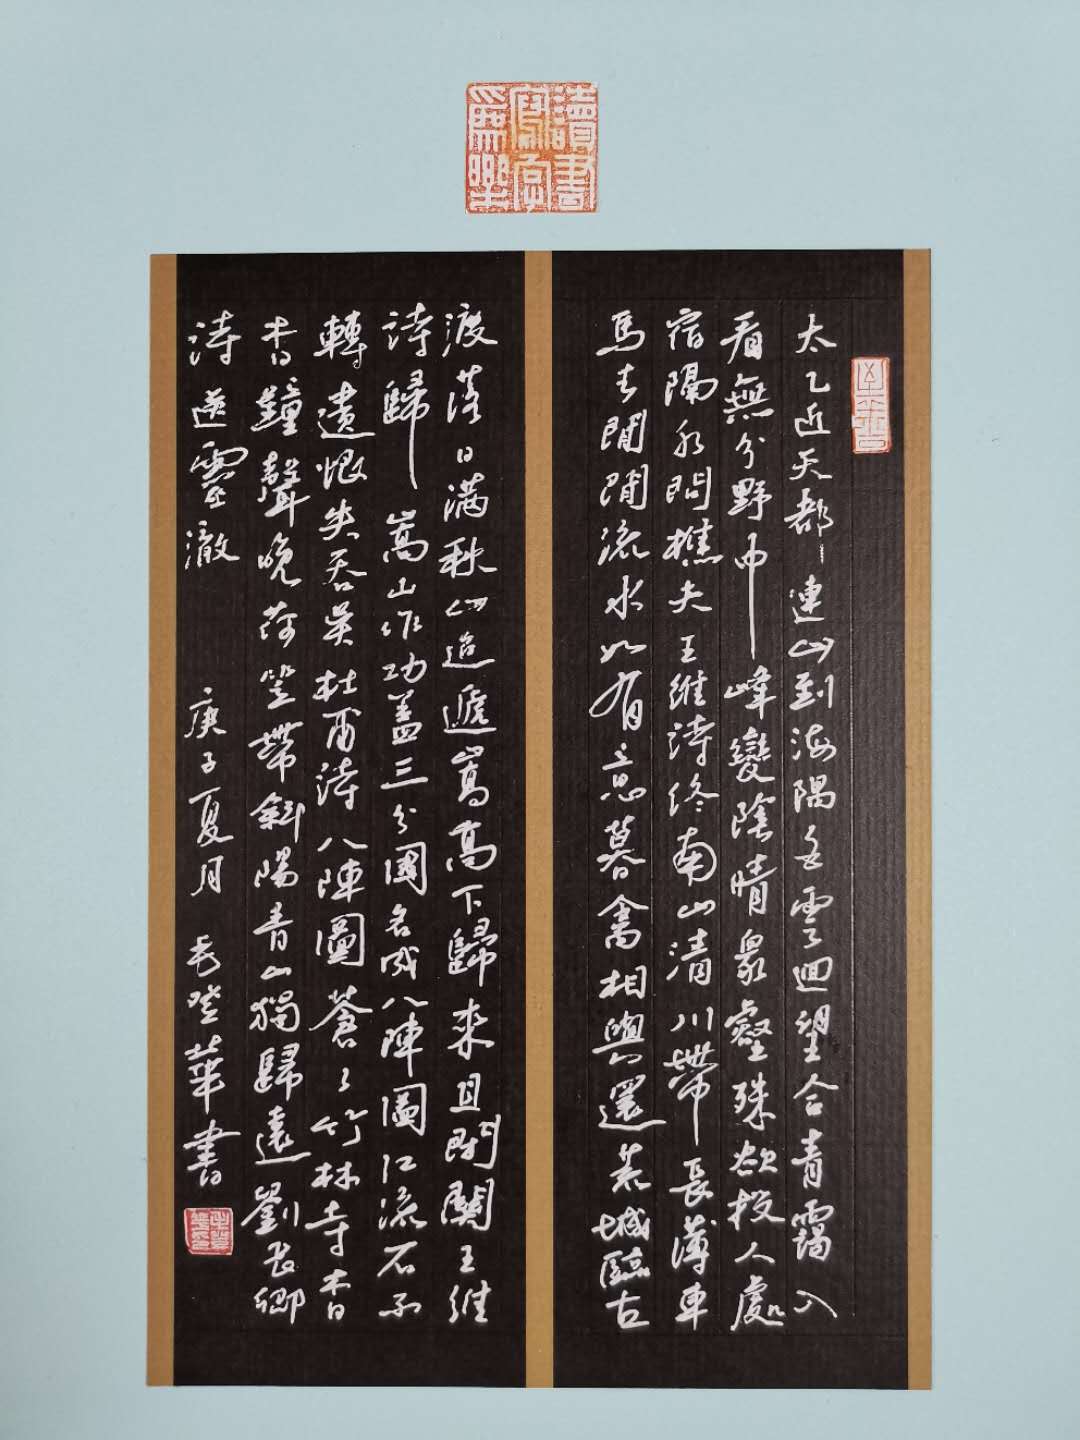 讀書寫字爲樂
太乙近天都連山到海隅白雲迴望合青靄入
看無分野中峰變陰晴衆壑殊欲投人處
宿隔水問樵夫王維詩終南山清川帶長薄車
馬去閒閒流水如有意暮禽相與還荒城臨古
渡落日滿秋山迢遞嵩高下歸來且閉關王維
詩歸嵩山作功蓋三分國名成八陣圖江流石不
轉遺恨失吞吳杜甫詩八陣圖蒼々竹林寺杳
杳鐘聲晚荷笠帶斜陽青山獨歸遠劉長卿
詩送靈澈 庚子夏月 毛華書